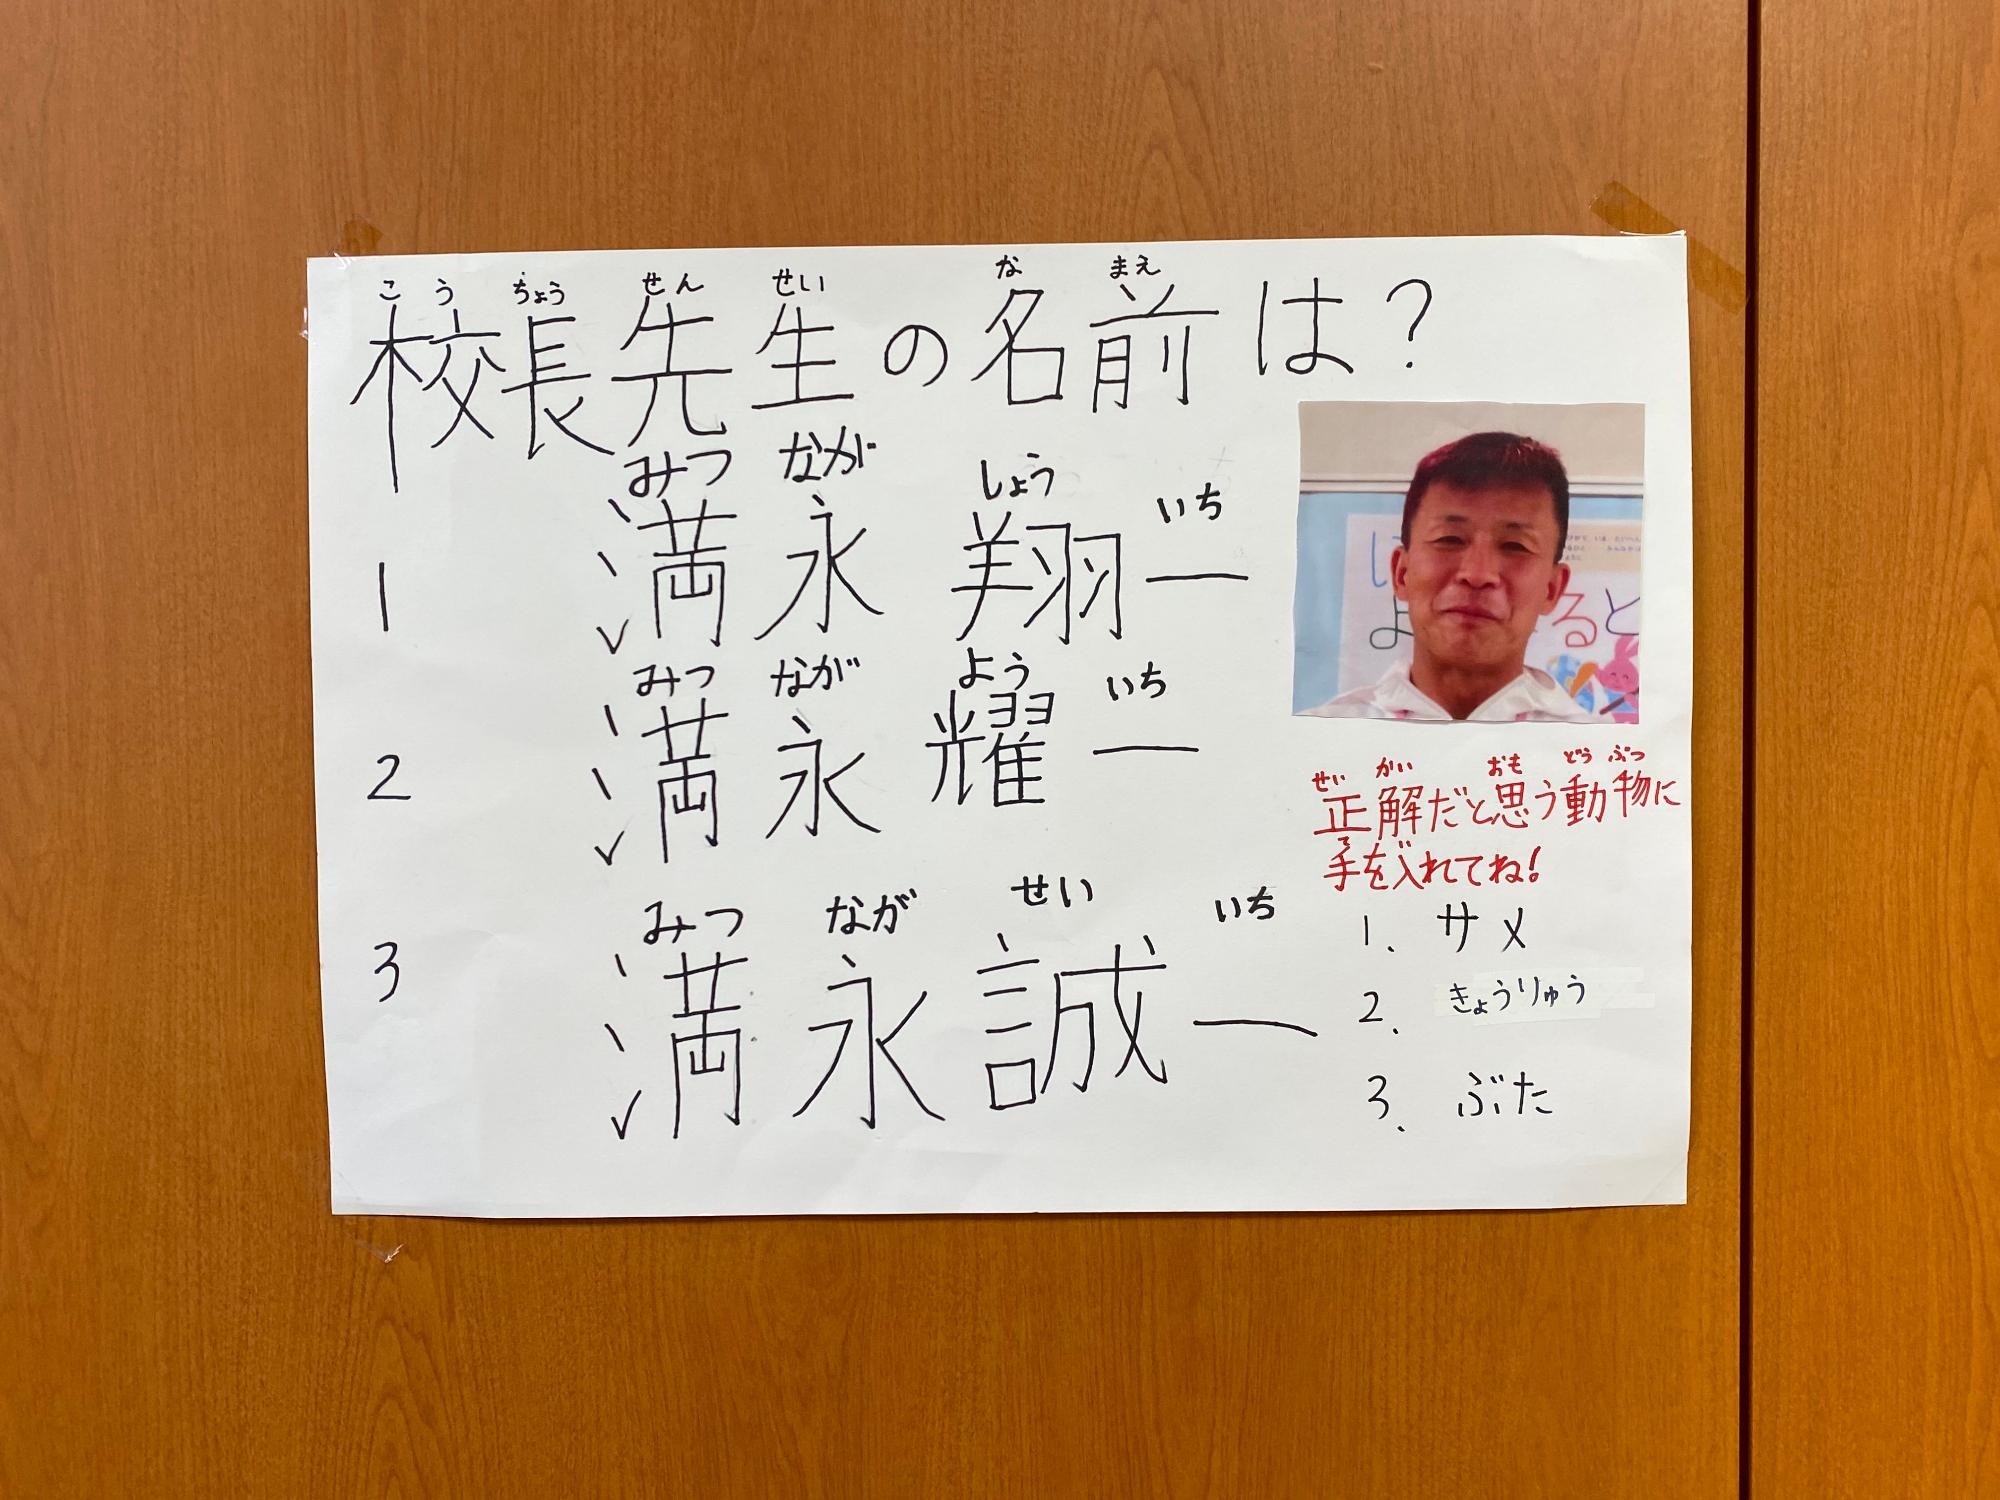 こうちょうせんせい なまえ
校長先生の名前は?
みつ なが しょう いち
1 満永 翔一
みつ なが よう いち
2 満永 耀一
みつ なが せい いち
3 満永 誠一
せいかい おも どうぶつ
正解だと思う動物に
て
手を入れてね!
1. サメ
2. きょうりゅう
3. ぶた